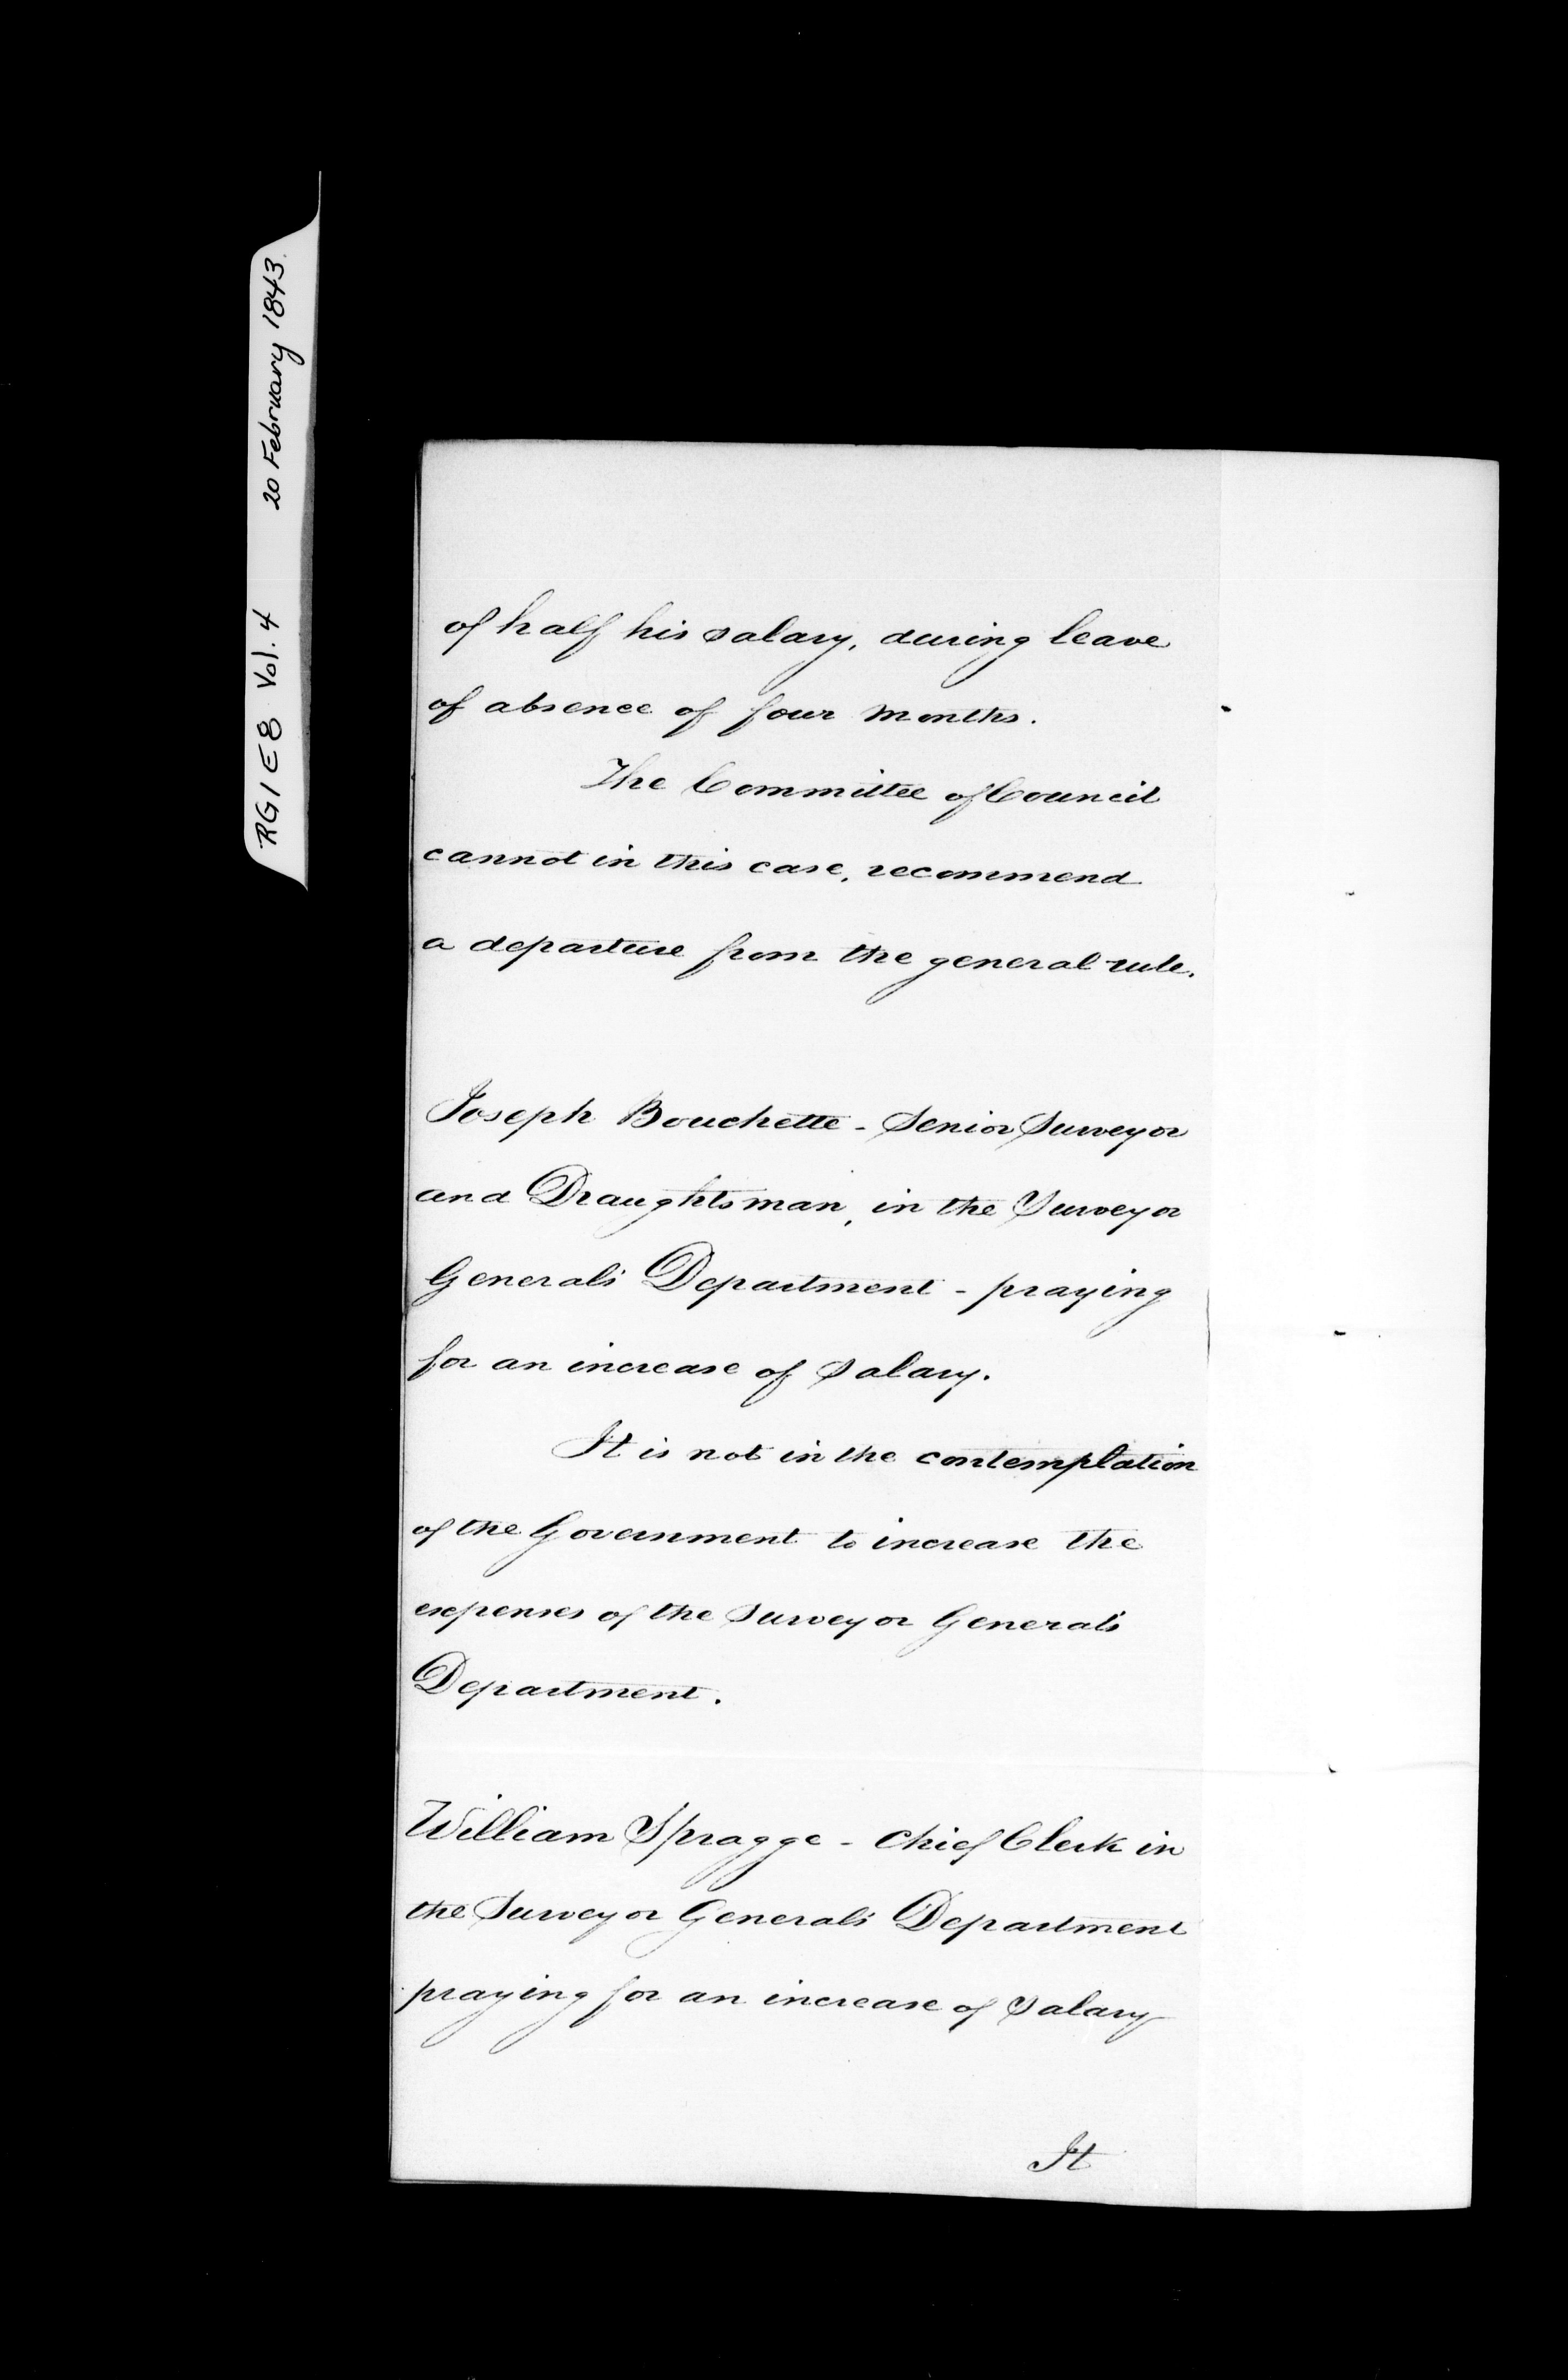 RG1 E8 Vol. 4 20 February 1843.
of half his salary, during leave
of absence of four months.
The Committee of Council
cannot in this case, recommend
a departure from the general rule.
Joseph Bouchette - Senior Surveyor
and Draughtsman, in the Surveyor
General's Department - praying
for an increase of Salary.
It is not in the contemplation
of the Government to increase the
expenses of the Surveyor General's
Department.
William Spragge - Chief Clerk in
the Surveyor General's Department
praying for an increase of Salary
It